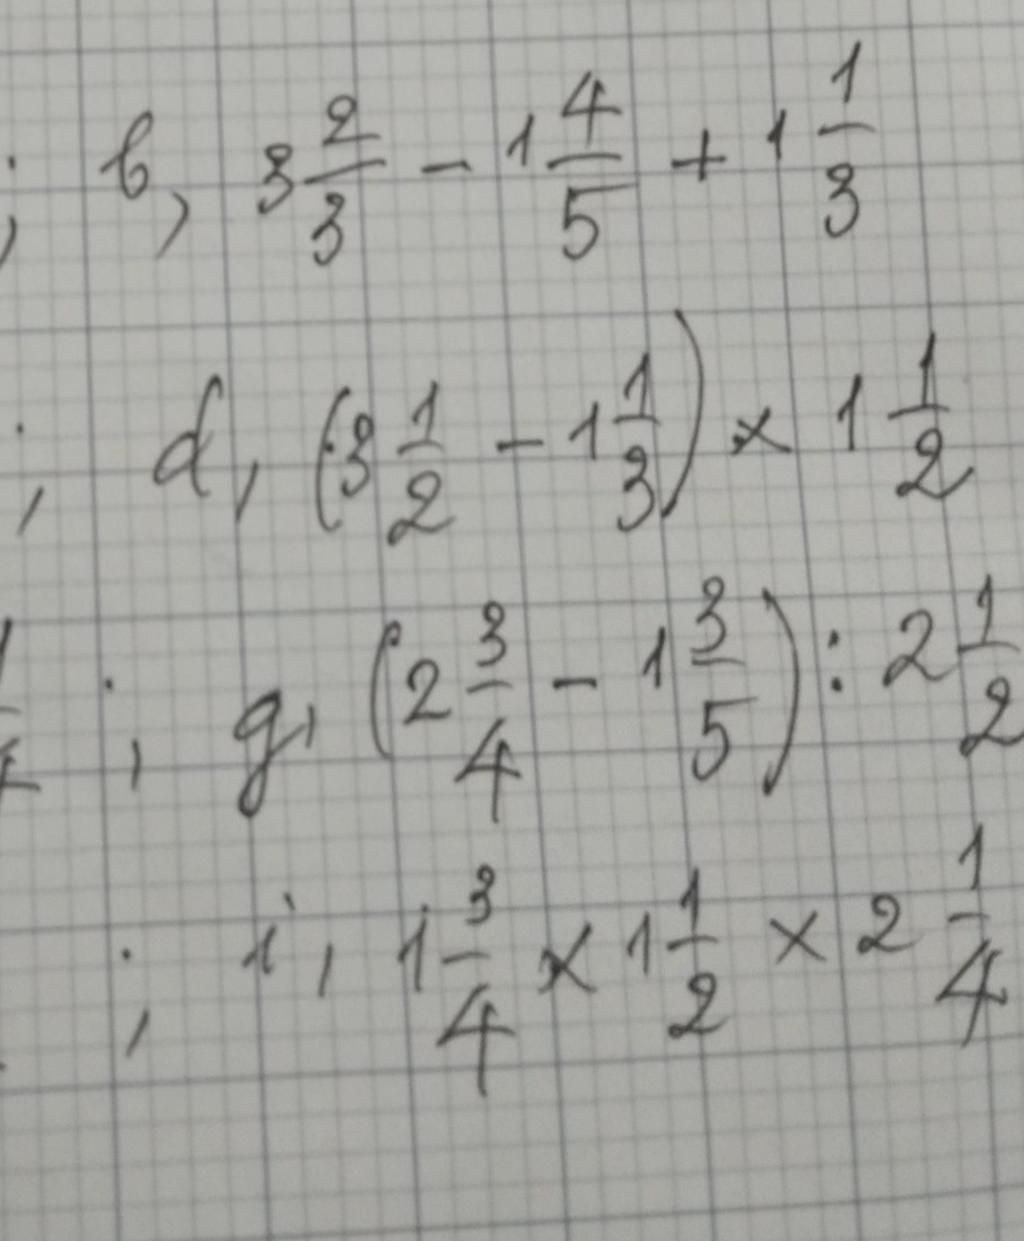 ; b, 3 2/3 - 1 4/5 + 1 1/3
; d, (3 1/2 - 1 1/3) × 1 1/2
; g, (2 3/4 - 1 3/5) : 2 1/2
; i, 1 3/4 × 1 1/2 × 2 1/4